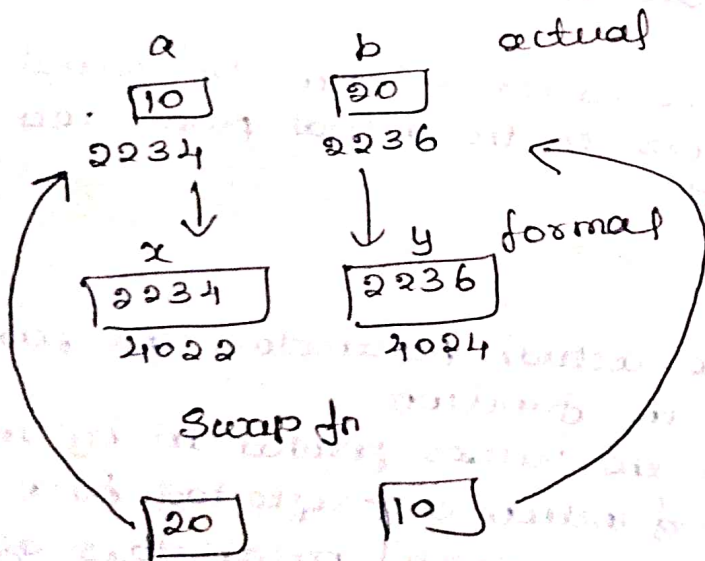 a b actual
10 20
2234 2236
x y formal
2234 2236
4022 4024
Swap fn
20 10